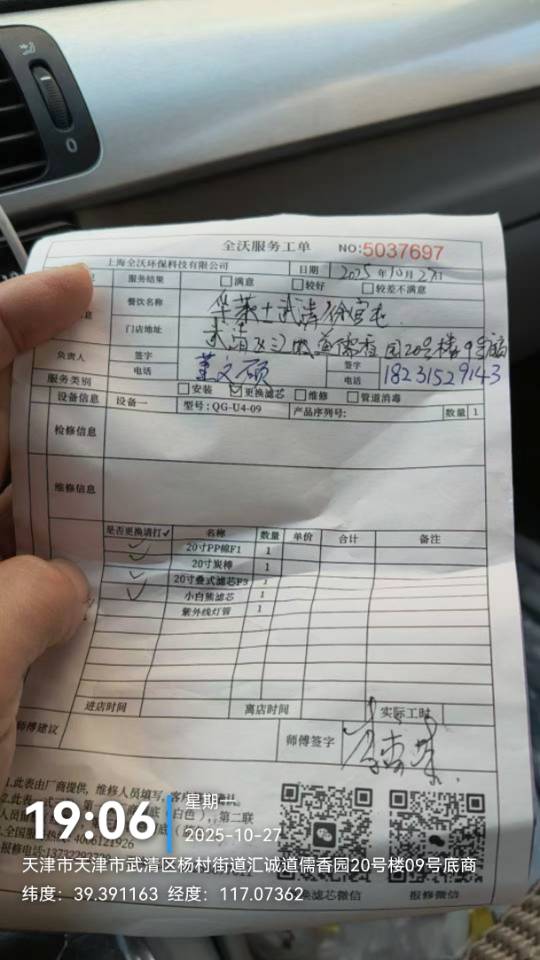 0
全沃服务工单 NO:5037697
上海全沃环保科技有限公司 日期 2025年10月27日
服务结果 满意 较好 较差不满意
餐饮名称 华莱士武清徐官屯
门店地址 20号楼9号底商
负责人 签字 董文硕 签字
电话 电话 18231529143
服务类别 安装 更换滤芯 维修 管道消毒
设备信息 设备一 型号:QG-U4-09 产品序列号: 数量 1
检修信息
维修信息
是否更换请打✓ 名称 数量 单价 合计 备注
✓ 20寸PP棉F1 1
20寸炭棒 1
✓ 20寸叠式滤芯F3 1
✓ 小白熊滤芯 1
紫外线灯管 1
进店时间 离店时间 实际工时
师傅建议 师傅签字
1.此表由厂商提供，维修人员填写，客
2.此表 第一 （白色），第二联
4006121926
报修电话:
滤芯微信 报修微信
19:06 星期一
2025-10-27
天津市天津市武清区杨村街道汇诚道儒香园20号楼09号底商
纬度：39.391163 经度：117.07362